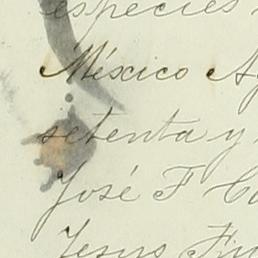 especies
México A
setenta y
José F C
Jesus Fi